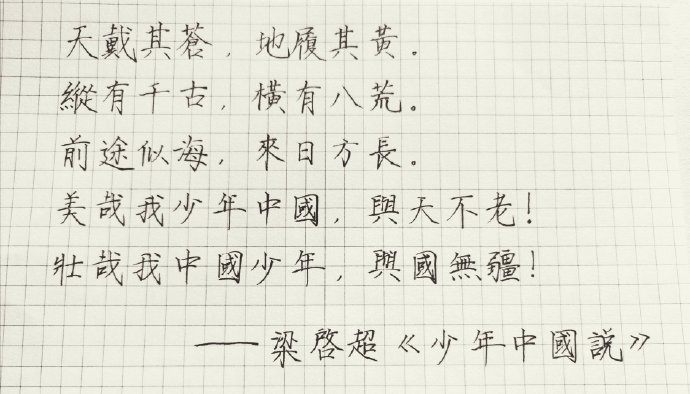 天戴其蒼，地履其黃。
縱有千古，橫有八荒。
前途似海，來日方長。
美哉我少年中國，與天不老！
壯哉我中國少年，與國無疆！
——梁啓超《少年中國說》